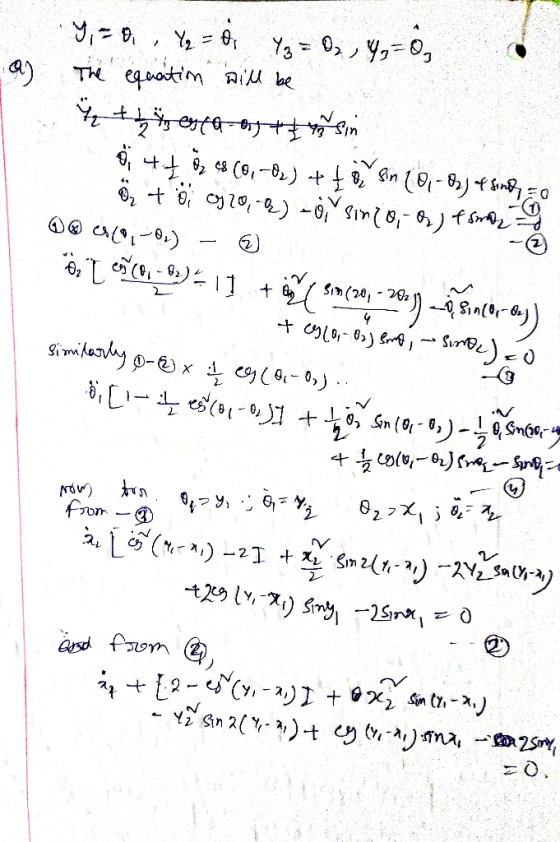 y₁ = θ₁ , y₂ = θ̇₁ y₃ = θ₂ , y₃ = θ̇₃
a) The equation will be
θ̈₁ + 1/2 θ̈₂ cos(θ₁-θ₂) + 1/2 θ̇₂² sin(θ₁-θ₂) + sinθ₁ = 0 - ①
θ̈₂ + θ̈₁ cos(θ₁-θ₂) - θ̇₁² sin(θ₁-θ₂) + sinθ₂ = 0 - ②
① ⊗ cos(θ₁-θ₂) - ②
θ̈₂ [ cos²(θ₁-θ₂)/2 - 1 ] + θ̇₂² ( sin(2θ₁-2θ₂)/4 ) - θ̇₁² sin(θ₁-θ₂)
+ cos(θ₁-θ₂) sinθ₁ - sinθ₂ ) = 0
- ③
similarly ①-② × 1/2 cos(θ₁-θ₂) ..
θ̈₁ [ 1 - 1/2 cos²(θ₁-θ₂) ] + 1/2 θ̇₂² sin(θ₁-θ₂) - 1/2 θ̇₁² sin
+ 1/2 cos(θ₁-θ₂) sinθ₂ - sinθ₁ =
- ④
Now,
from - ③ θ₁ → y₁ ; θ̇₁ = y₂ θ₂ → x₁ ; θ̇₂ = x₂
ẋ₂ [ cos²(y₁-x₁) - 2 ] + x₂²/2 sin2(y₁-x₁) - 2y₂² sin(y₁-x₁)
+ 2cos(y₁-x₁) siny₁ - 2sinx₁ = 0
-- ②
and from ④,
+ [ 2 - cos²(y₁-x₁) ] + x₂² sin(y₁-x₁)
- y₂² sin2(y₁-x₁) + cos(y₁-x₁) sinx₁ - 2siny₁
= 0.